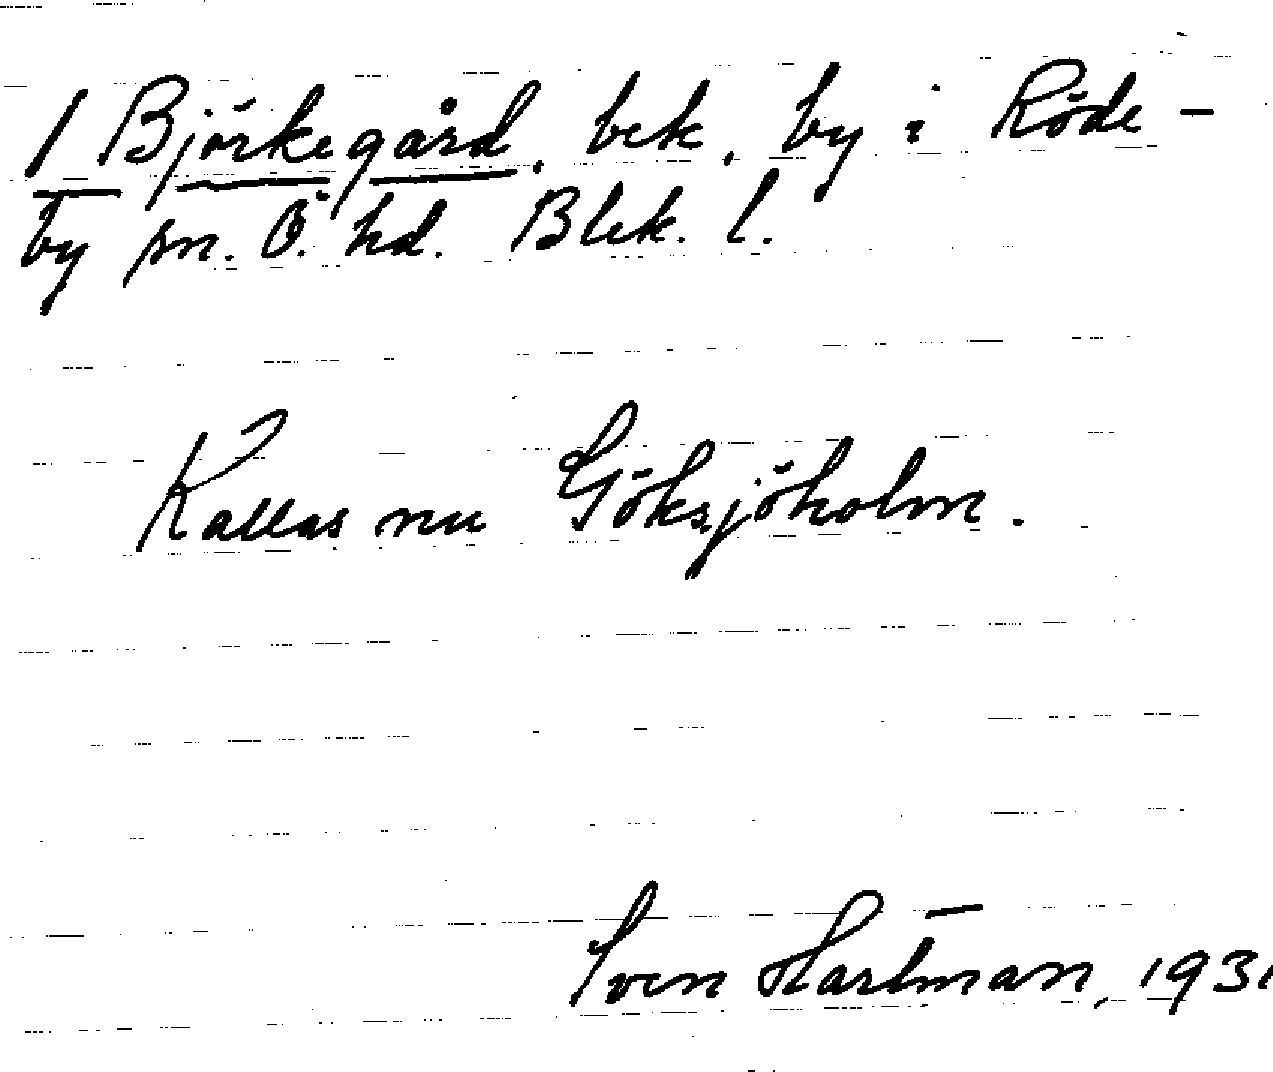 1 Björkegård. bek. by i Röde-
by sn. Ö. hd. Blek. l.
Kallas nu Göksjöholm.
Sven Hartman, 1931